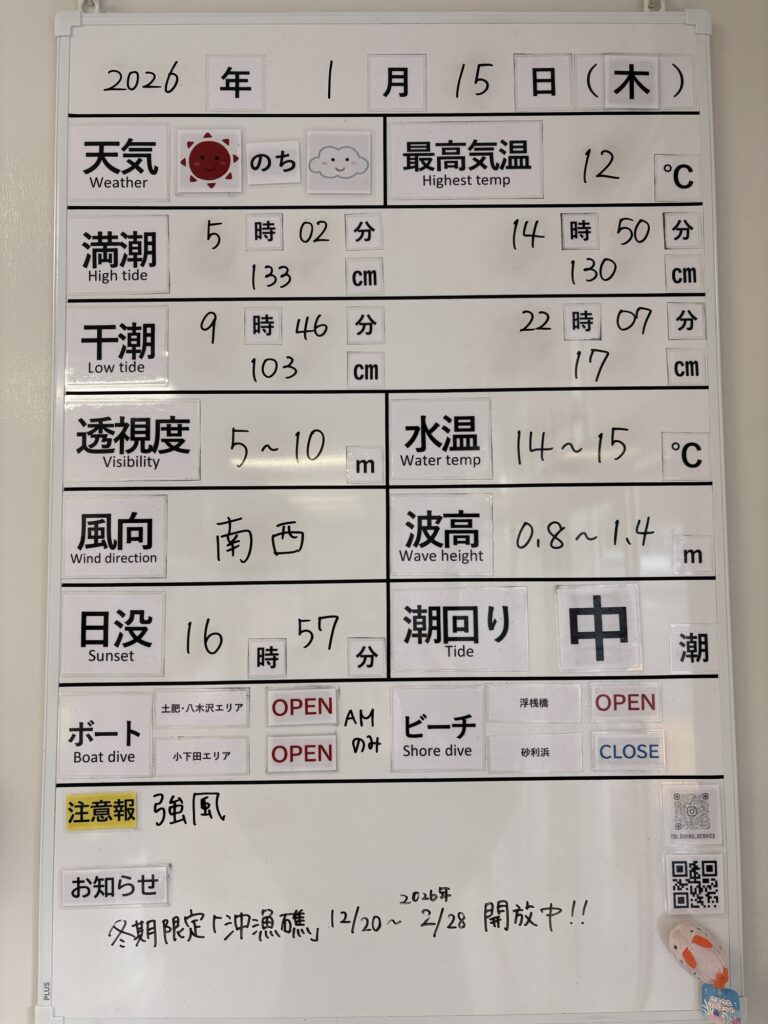 2026 年 1 月 15 日 (木)
天気 のち 最高気温 12 ℃
Weather Highest temp
満潮 5 時 02 分 14 時 50 分
High tide 133 cm 130 cm
干潮 9 時 46 分 22 時 07 分
Low tide 103 cm 17 cm
透視度 5~10 m 水温 14~15 ℃
Visibility Water temp
風向 南西 波高 0.8~1.4 m
Wind direction Wave height
日没 16 時 57 分 潮回り 中 潮
Sunset Tide
ボート 土肥・八木沢エリア OPEN AM ビーチ 浮桟橋 OPEN
Boat dive 小下田エリア OPEN のみ Shore dive 砂利浜 CLOSE
注意報 強風
TOI_DIVING_SERVICE
お知らせ
2026年
冬期限定「沖漁礁」12/20~2/28 開放中!!
PLUS